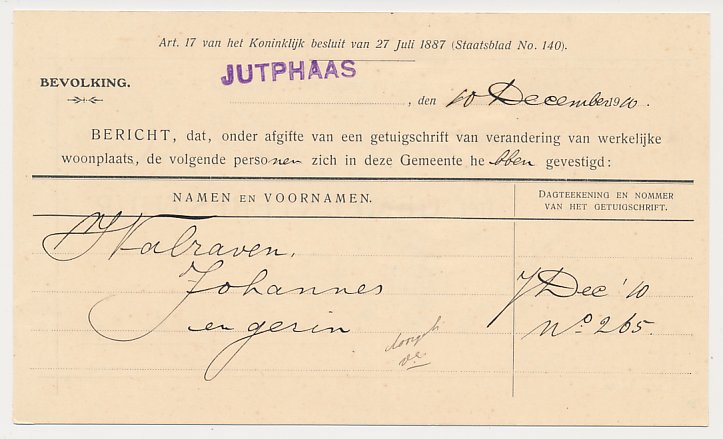 Art. 17 van het Koninklijk besluit van 27 Juli 1887 (Staatsblad No. 140).
JUTPHAAS
BEVOLKING.
, den 10 December 1910.
BERICHT, dat, onder afgifte van een getuigschrift van verandering van werkelijke
woonplaats, de volgende personen zich in deze Gemeente hebben gevestigd:
NAMEN EN VOORNAMEN.
DAGTEEKENING EN NOMMER
VAN HET GETUIGSCHRIFT.
Walraven,
Johannes
7 Dec '10
en gezin
No 265.